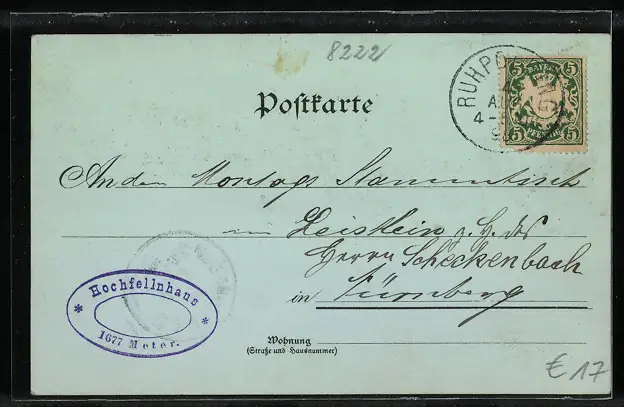 8222
Postkarte
RUHPO
4-
5 BAYERN 5
5 PFENNIG 5
An den Montags Stammtisch
im Leistlein z. H. des
Herrn Scheckenbach
in Nürnberg
Hochfellnhaus
* *
1677 Meter.
Wohnung
(Straße und Hausnummer)
€ 17